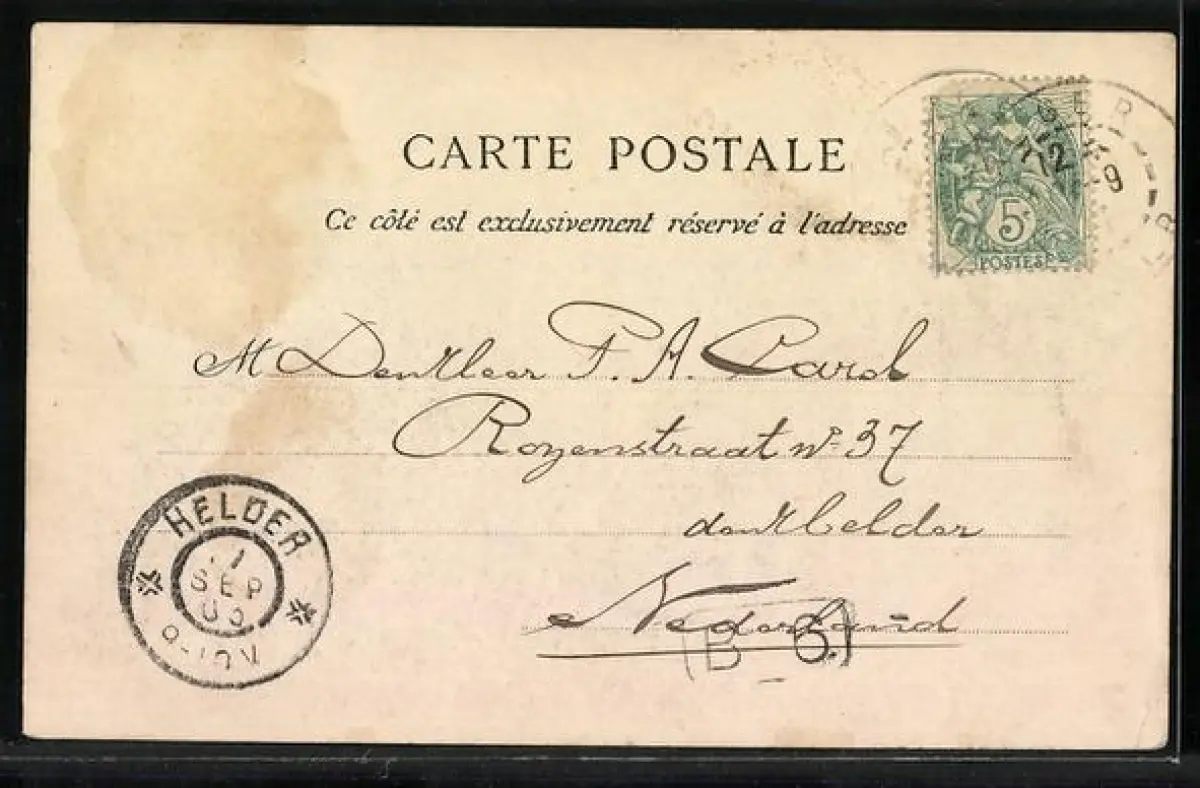 CARTE POSTALE
Ce côté est exclusivement réservé à l'adresse
5c
POSTES
M DenHeer F. A. Carol
Royenstraat No 37
den Helder
Nederland
(B 6)
HELDER
1
SEP
9-10V